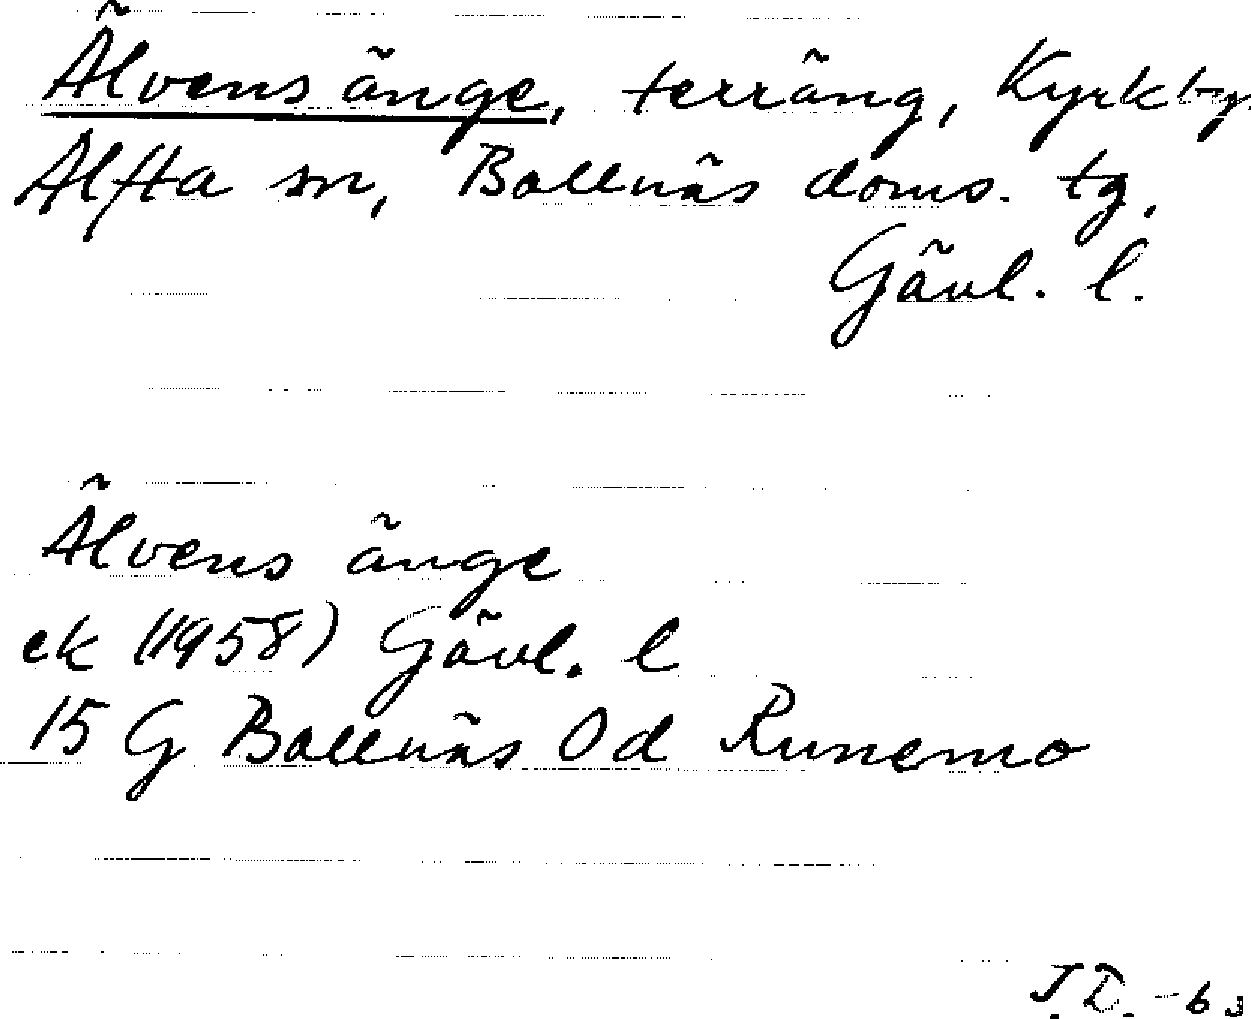 Älvens änge, terräng, Kyrkby
Alfta sn, Bollnäs doms. tg,
Gävl. l.
Älvens änge
ek (1958) Gävl. l
15 G Bollnäs 0d Runemo